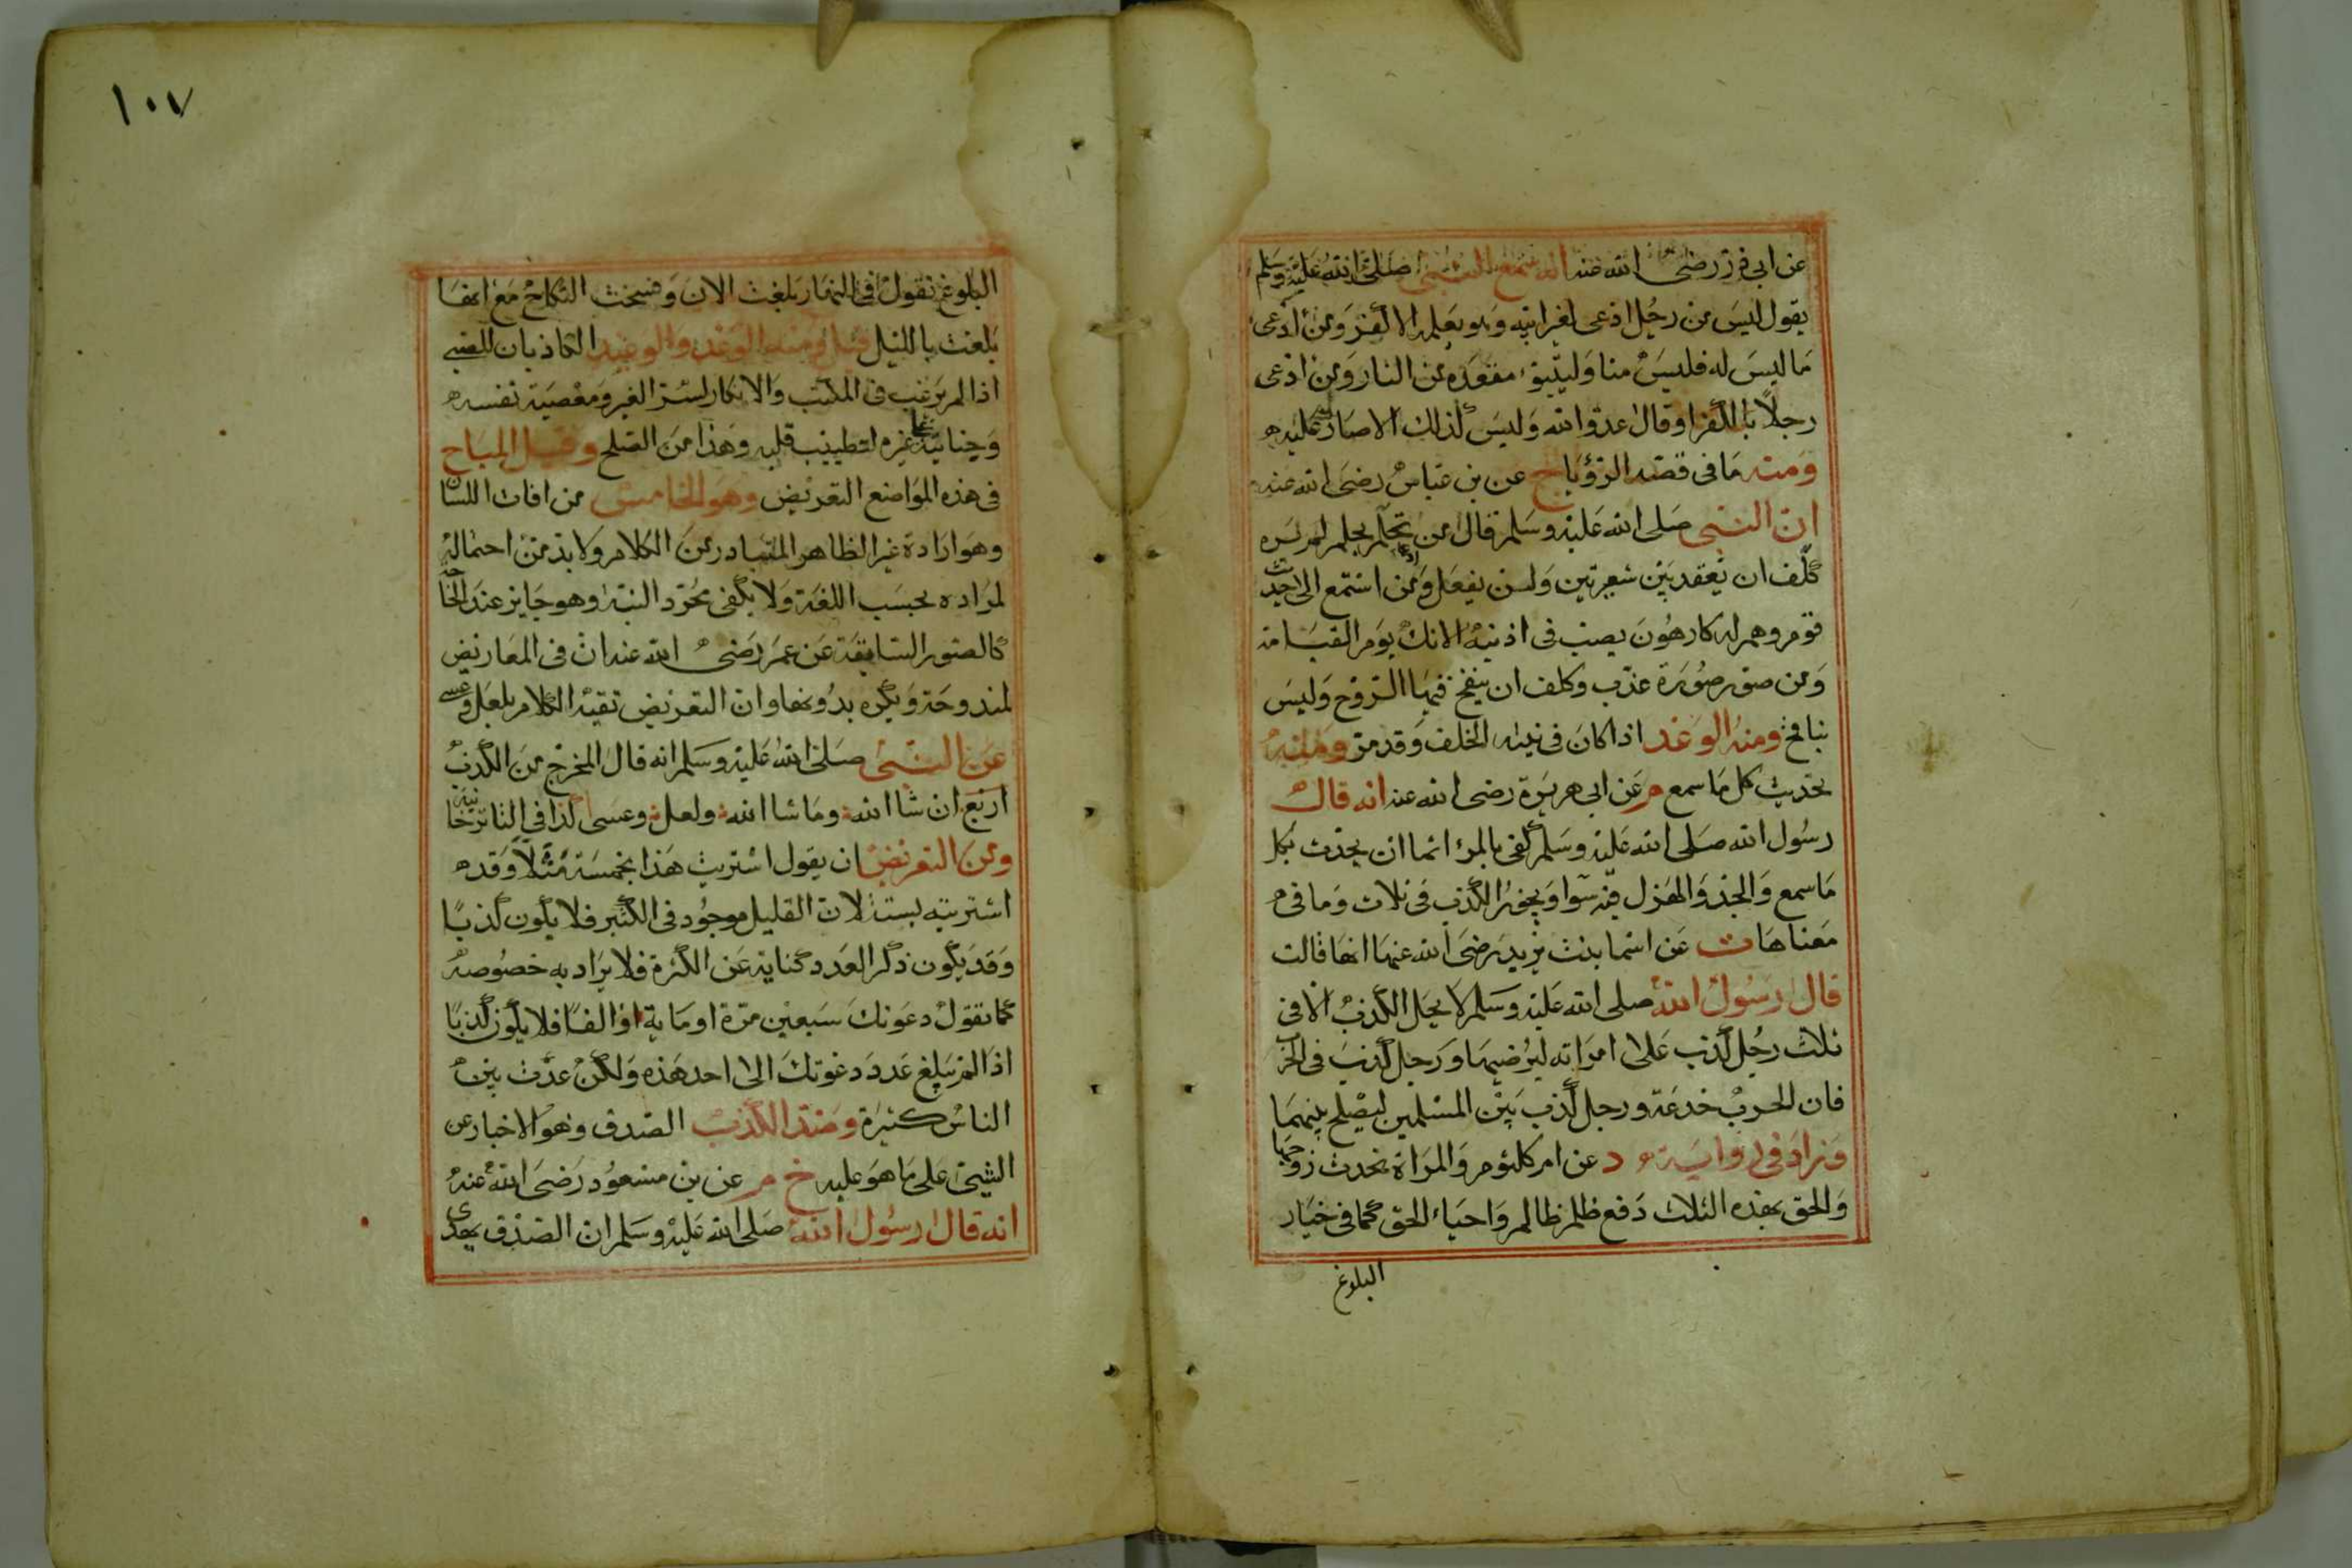 عن ابي ذر رضى الله عنه انه سمع النبى صلى الله عليه وسلم
يقول ليس من رجل ادعى لغير ابيه وهو يعلمه الا كفر ومن ادعى
ما ليس له فليس منا وليتبوء مقعده من النار ومن ادعى
رجلا بالكفر او قال عدو الله وليس كذلك الا صار عليه
ومنه ما فى قصه الرؤيا خ عن بن عباس رضى الله عنه
ان النبى صلى الله عليه وسلم قال من تحلم بحلم لم يره
كلف ان يعقد بين شعيرتين ولن يفعل ومن استمع الى حديث
قوم وهم له كارهون يصب فى اذنيه الانك يوم القيامة
ومن صور صورة عذب وكلف ان ينفخ فيها الروح وليس
بنافخ ومنه الوعد اذا كان فى نيته الخلف وقد مر ومنه
تحديث كل ما سمع م عن ابى هريرة رضى الله عنه انه قال
رسول الله صلى الله عليه وسلم كفى بالمرء اثما ان يحدث بكل
ما سمع والجد والهزل فيه سوا ويجوز الكذب فى ثلاث وما فى
معناها ت عن اسما بنت يزيد رضى الله عنها انها قالت
قال رسول الله صلى الله عليه وسلم لا يحل الكذب الا فى
ثلاث رجل كذب على امراته ليرضيها ورجل كذب فى الحرب
فان الحرب خدعة ورجل كذب بين المسلمين ليصلح بينهما
وزاد فى رواية د عن ام كلثوم والمراة تحدث زوجها
والحق بهذه الثلاث دفع ظلم ظالم واحياء الحق كما فى خيار
البلوغ
١٠٧
البلوغ تقول فى النهار بلغت الان وفسخت النكاح مع انها
بلغت بالليل قيل ومنه الوعد والوعيد الكاذبان للصبى
اذا لم يرغب فى المكتب والانكار لسر الغير ومعصية نفسه
وجنايته على غيره لتطييب قلبه وهذا من الصلح وقيل المباح
فى هذه المواضع التعريض وهو الخامس من افات اللسان
وهو ارادة غير الظاهر المتبادر من الكلام ولا بد من احتماله
لمراده بحسب اللغة ولا يكفى مجرد النية وهو جايز عند الحاجة
كالصور السابقة عن عمر رضى الله عنه ان فى المعاريض
لمندوحة ويكره بدونها وان التعريض تقية الكلام بلعل وعسى
عن النبى صلى الله عليه وسلم انه قال المخرج من الكذب
اربع ان شا الله وما شا الله ولعل وعسى كذا فى التاترخانية
ومن التعريض ان يقول اشتريت هذا بخمسة مثلا وقد
اشتريته بستة لان القليل موجود فى الكثير فلا يكون كذبا
وقد يكون ذكر العدد كناية عن الكثرة فلا يراد به خصوصه
كما تقول دعوتك سبعين مرة او ماية او الفا فلا يكون كذبا
اذا لم يبلغ عدد دعوتك الى احد هذه ولكن عدت بين
الناس كثيرة وضد الكذب الصدق وهو الاخبار عن
الشيئ على ما هو عليه خ م عن بن مسعود رضى الله عنه
انه قال رسول الله صلى الله عليه وسلم ان الصدق يهدى